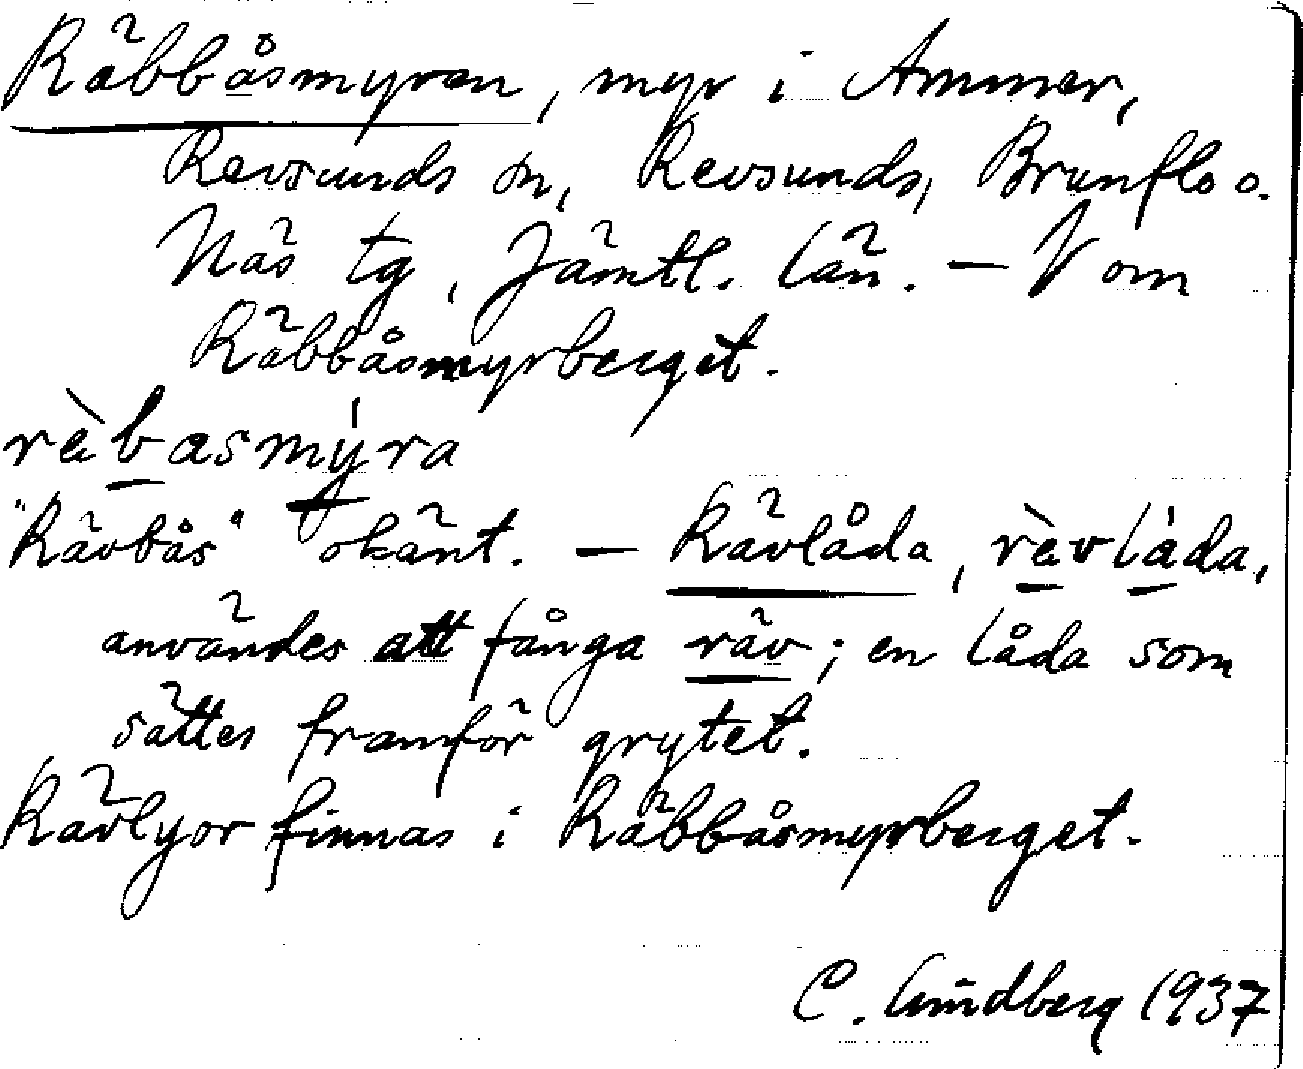 Räbbåsmyren, myr i Ammer,
Revsunds sn, Revsunds, Brunflo o.
Näs tg, Jämtl. län. — V om
Räbbåsmyrberget.
rèbasmýra
"Rävbås" okänt. — Rävlåda, rèvláda,
användes att fånga räv; en låda som
sättes framför grytet.
Rävlyor finnas i Räbbåsmyrberget.
C. Lindberg 1937